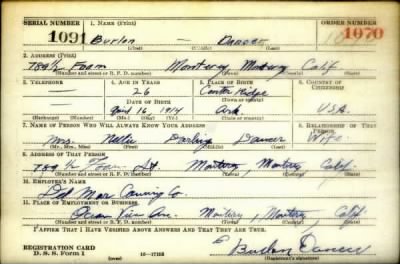 SERIAL NUMBER 1. NAME (Print) ORDER NUMBER
1091 Burlon — Dancer 1070
(First) (Middle) (Last)
2. ADDRESS (Print)
789½ Foam Monterey, Monterey Calif
(Number and street or R. F. D. number) (Town) (County) (State)
3. TELEPHONE 4. AGE IN YEARS 5. PLACE OF BIRTH 6. COUNTRY OF CITIZENSHIP
— 26 Center Ridge
DATE OF BIRTH (Town or county)
April 16 1914 Ark. U.S.A.
(Exchange) (Number) (Mo.) (Day) (Yr.) (State or country)
7. NAME OF PERSON WHO WILL ALWAYS KNOW YOUR ADDRESS 8. RELATIONSHIP OF THAT PERSON
Mrs Nellie Darling Dancer Wife
(Mr., Mrs., Miss) (First) (Middle) (Last)
9. ADDRESS OF THAT PERSON
789½ Foam St. Monterey, Monterey Calif.
(Number and street or R. F. D. number) (Town) (County) (State)
10. EMPLOYER'S NAME
Del Mar Canning Co.
11. PLACE OF EMPLOYMENT OR BUSINESS
Ocean View Ave. Monterey, Monterey, Calif.
(Number and street or R. F. D. number) (Town) (County) (State)
I AFFIRM THAT I HAVE VERIFIED ABOVE ANSWERS AND THAT THEY ARE TRUE.
REGISTRATION CARD
D. S. S. Form 1 16—17105 Burlon Dancer
(Registrant's signature)